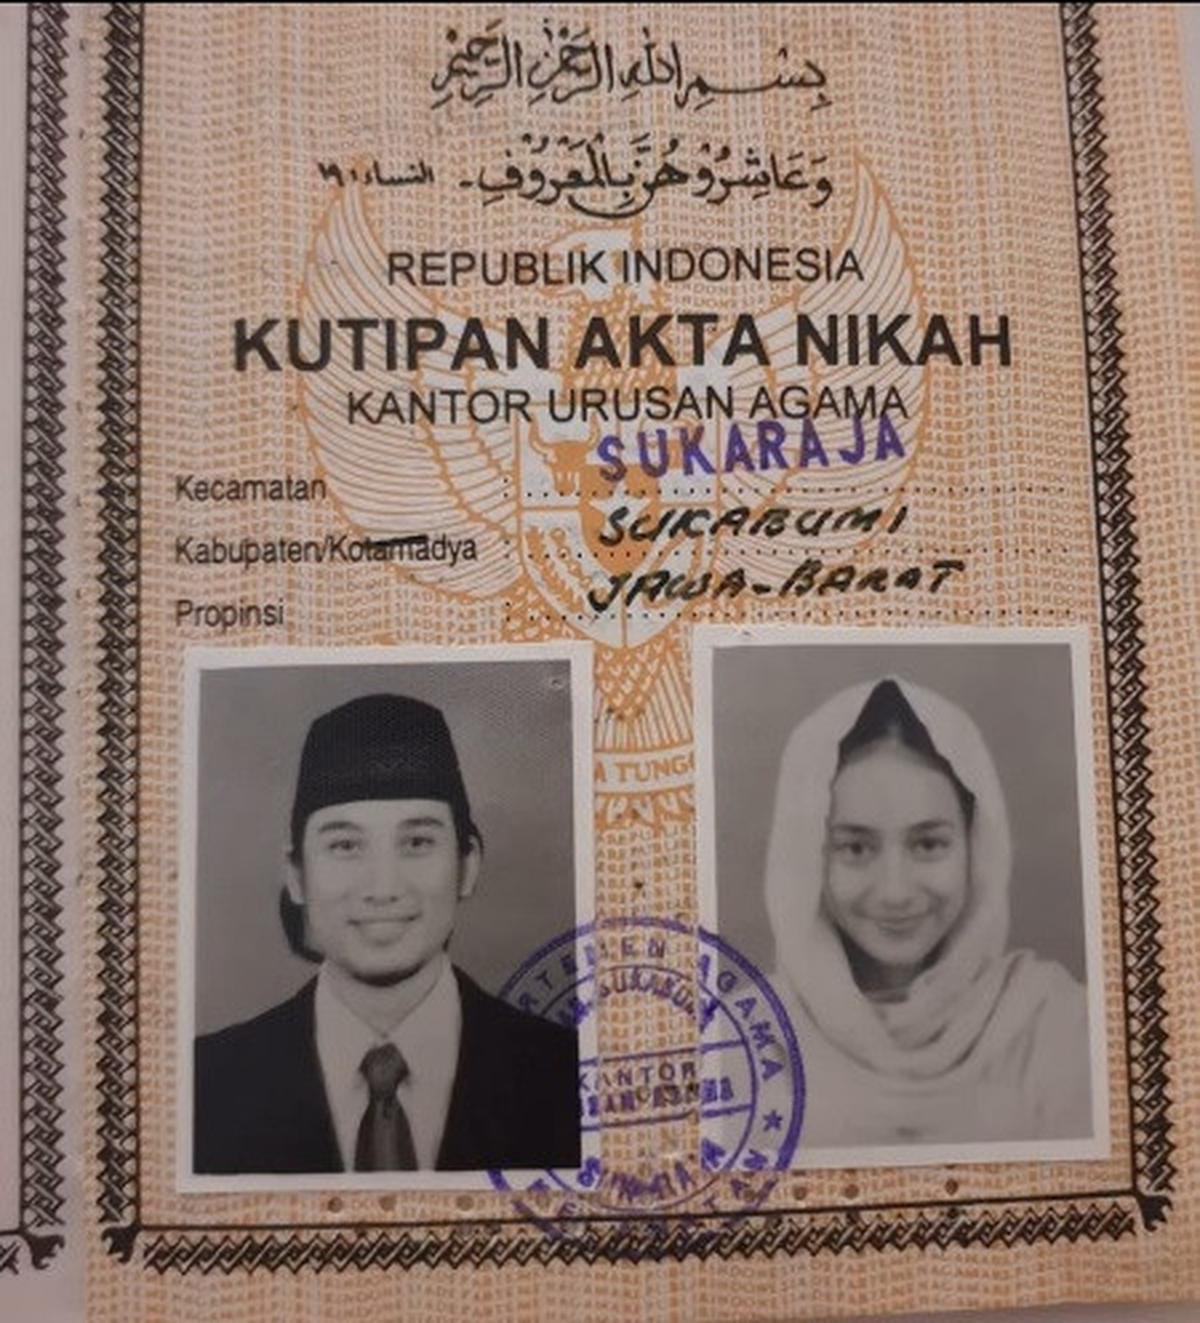 بِسْمِ اللهِ الرَّحْمٰنِ الرَّحِيْمِ
وَعَاشِرُوْهُنَّ بِالْمَعْرُوْفِ - النساء: ١٩
REPUBLIK INDONESIA
KUTIPAN AKTA NIKAH
KANTOR URUSAN AGAMA
Kecamatan SUKARAJA
Kabupaten/Kotamadya : SUKABUMI
Propinsi : JAWA-BARAT
A TUNGG
RTEMEN AGAMA
KANTOR